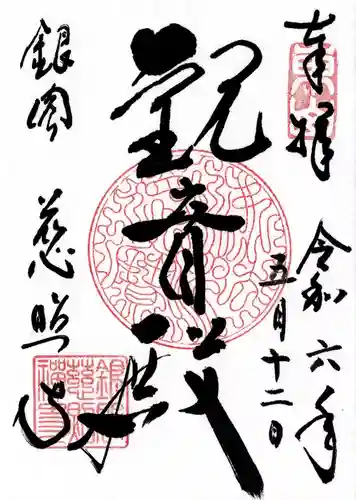 奉拝
令和六年
五月十二日
觀音殿
銀閣
慈照寺